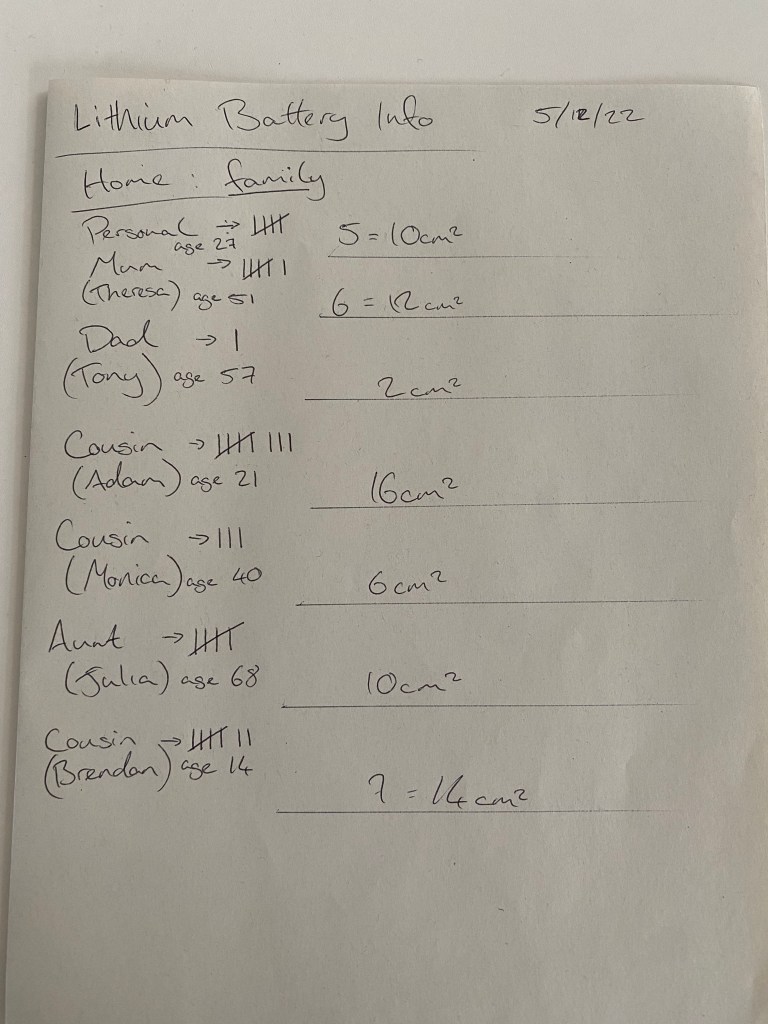 Lithium Battery Info 5/12/22
Home : family
Personal → 卌 5 = 10cm²
age 27
Mum → 卌 |
(Theresa) age 51 6 = 12cm²
Dad → |
(Tony) age 57 2cm²
Cousin → 卌 |||
(Adam) age 21 16cm²
Cousin → |||
(Monica) age 40 6cm²
Aunt → 卌
(Julia) age 68 10cm²
Cousin → 卌 ||
(Brendan) age 14 7 = 14cm²